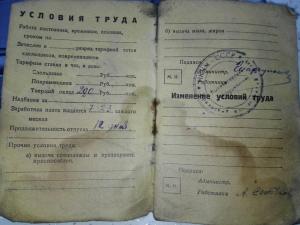 УСЛОВИЯ ТРУДА
Работа постоянная, временная, сезонная,
сроком на
Зачислен в разряд тарифной сетки
Тарифные ставки в час, в день:
Сдельщика Руб. коп.
Повременщика Руб. коп.
Твердый оклад 200 Руб. коп.
Надбавки за
Заработная плата выдается 7 - 22 каждого
месяца
Продолжительность отпуска 12 дней
Прочие условия труда:
а) выдача спецодежды и предохранит.
приспособлен.
б) выдача мыла, жиров
Подписи:
М. П.
Администр.
Работника
Изменение условий труда
Подписи:
М. П.
Администр.
Работника